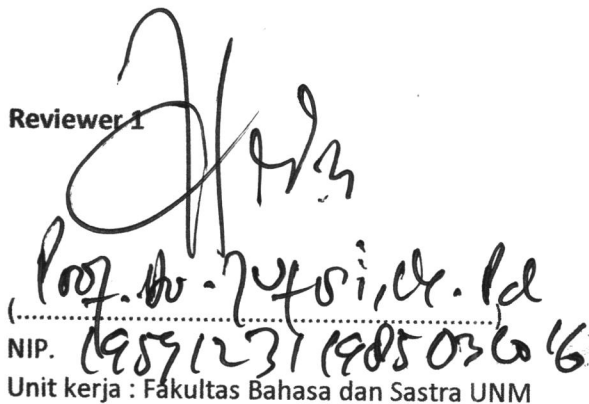 Reviewer 1
Prof. Dr. Jufri, M. Pd
(....................................................)
NIP. 19591231 198503 1 016
Unit kerja : Fakultas Bahasa dan Sastra UNM